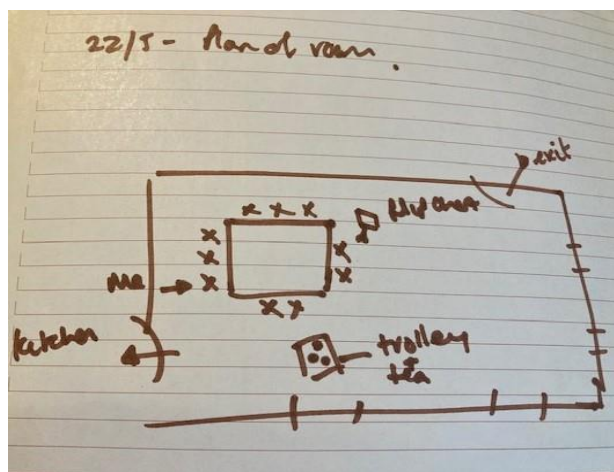 22/5 - Plan of room.
exit
flip chart
me
kitchen
trolley
tea